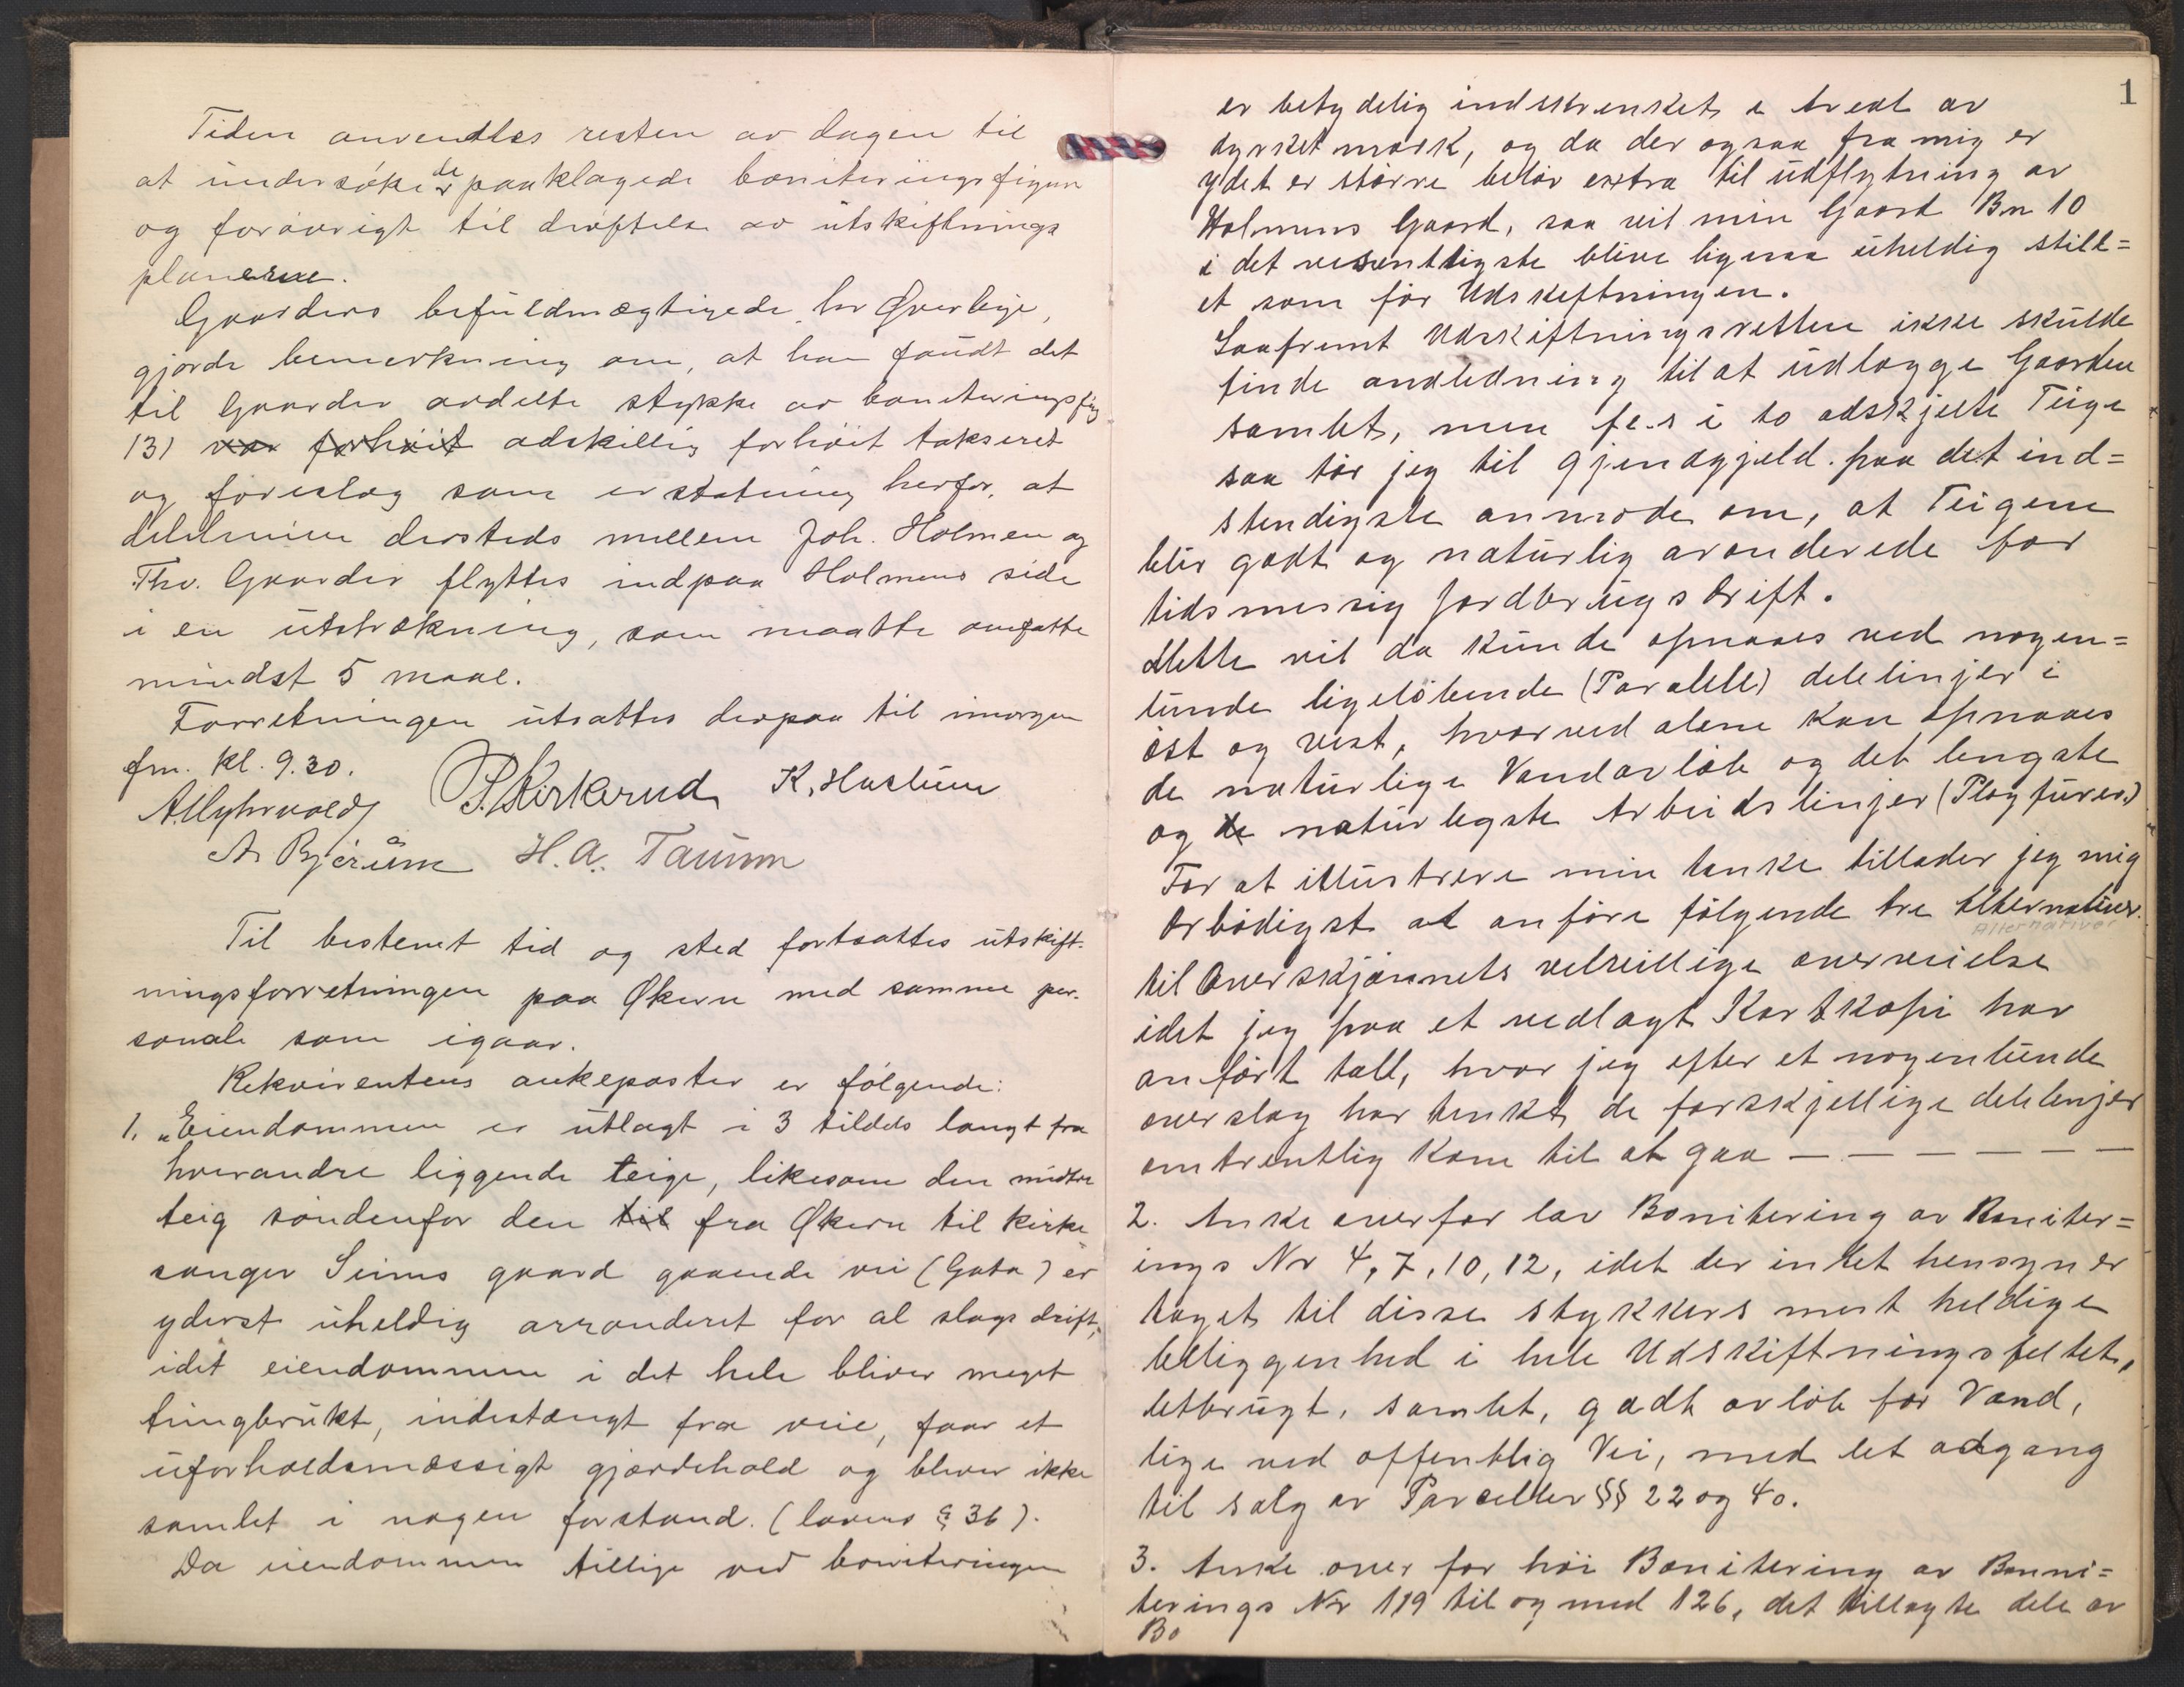 Tiden anvendtes resten av dagen til
at undersöke de paaklagede boniteringsfigurer
og forøvrigt til drøftelse av utskiftnings
planerne.
Gaarders befuldmægtigede, hr Øverbye,
gjorde bemerkning om, at han fandt det
til Gaarder avdelte stykke av boniteringsfig
131 var forhöit adskillig forhöit takseret
og foreslog som erstatning herfor, at
delelinien dersteds mellem Joh. Holmen og
Thv. Gaarder flyttes ind paa Holmens side
i en utstrækning, som maatte omfatte
mindst 5 maal.
Forretningen utsattes derpaa til imorgen
fm. kl. 9.30.
A. Myhrvold P. Kirkerud K. Haslum
A. Bjerum H. A. Taunm
Til bestemt tid og sted fortsattes utskift-
ningsforretningen paa Økern med samme per-
sonale som igaar.
Rekvirentens ankeposter er følgende:
1. „Eiendommen er utlagt i 3 tildels langt fra
hverandre liggende teige, likesom den midtre
teig søndenfor den til fra Økern til kirke
sanger Seims gaard gaaende vei (Gata) er
yderst uheldig arronderet for al slags drift,
idet eiendommen i det hele bliver meget
tungbrukt, indestængt fra veie, faar et
uforholdsmæssigt gjærdehold og bliver ikke
samlet i nogen forstand. (lovens § 36).
Da eiendommen tillige ved boniteringen
1
er betydelig indskrenket i Areal av
dyrket mark, og da der ogsaa fra mig er
ydet er större belöv extra til udflytning av
Holmens Gaard, saa vil min Gaard Bn 10
i det vesentligste blive ligesaa uheldig still=
et som för Udskiftningen.
Saafremt Udskiftningsretten ikke skulde
finde andledning til at udlægge Gaarden
samlet, men f.e.s i to adskjelte Teige
saa tör jeg til gjengjeld paa det ind=
stendigste anmode om, at Teigene
blir godt og naturlig aronderede for
tidsmessig Jordbrugsdrift.
Dette vil da kunde opnaaes ved nogen=
lunde ligelöbende (Paralell) delelinjer i
öst og vest, hvorved alene kan opnaaes
de naturlige Vandavlöb og det lengste
og de naturlegste Arbeidslinjer (Plogfurer.)
For at illustrere min tanke tillader jeg mig
Erbödigst at anföre fölgende tre Alternativer
Alternativer
til Overskjønnets velvillige overveielse
idet jeg paa et vedlagt Kartkopi har
anfört tall, hvor jeg efter et nogenlunde
overslag har tenkt de forskjellige delelinjer
omtrentlig kom til at gaa — — — — — —
2. Anke over for lav Bonitering av Boniter=
ings Nr 4, 7, 10, 12, idet der intet hensyn er
taget til disse stykkers mest heldige
beliggenhed i hele Udskiftningsfeltet,
letbrugt, samlet, godt avlöb for Vand,
lige ved offentlig Vei, med let adgang
til salg av Parceller §§ 22 og 40.
3. Anke over for höi Bonitering av Bonni=
terings Nr 119 til og med 126, det tillagte dele av
Bo